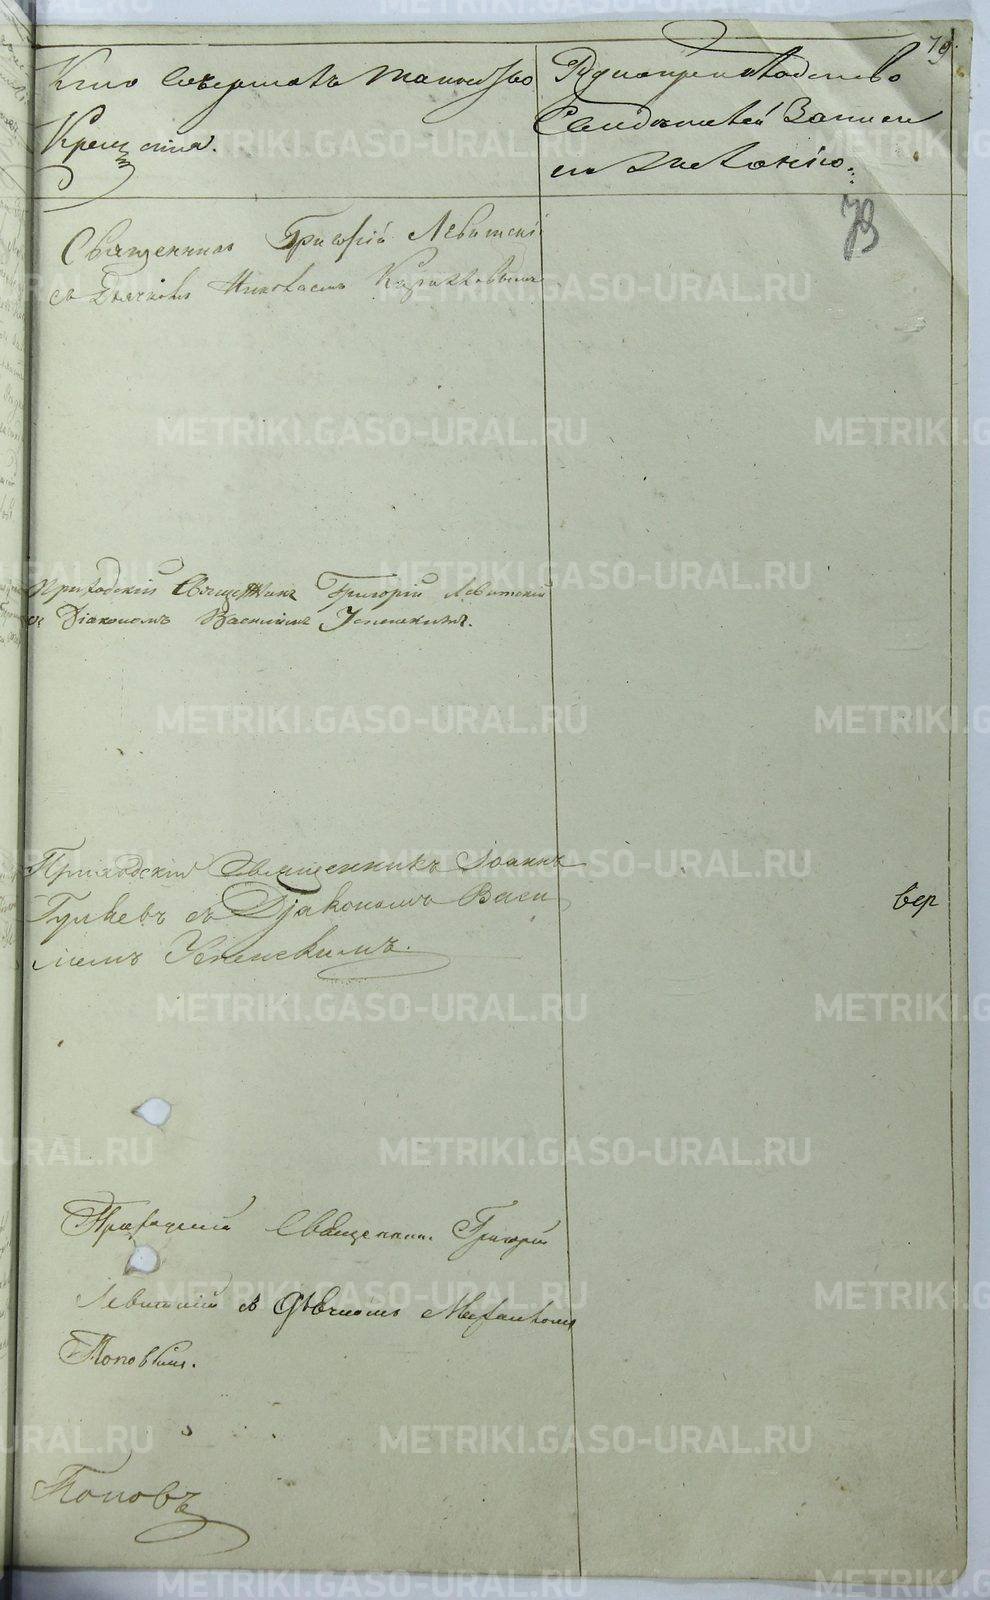 79.
Кто Совершалъ таинство
Крещенія.
Рукоприкладство
Свидѣтелей Записи
по желанію.
79
Священникъ Григорій Левитскій
съ Дьячкомъ Николаемъ
Приходскій Священникъ Григорій Левитскій
съ Діакономъ Василіемъ Успенскимъ.
Приходскій Священникъ Іоаннъ
Гуляевъ съ Діакономъ Васи
ліемъ Успенскимъ.
вер
Приходскій Священникъ Григорій
Левитскій съ Дьячкомъ
Поповымъ.
Поповъ
METRIKI.GASO-URAL.RU